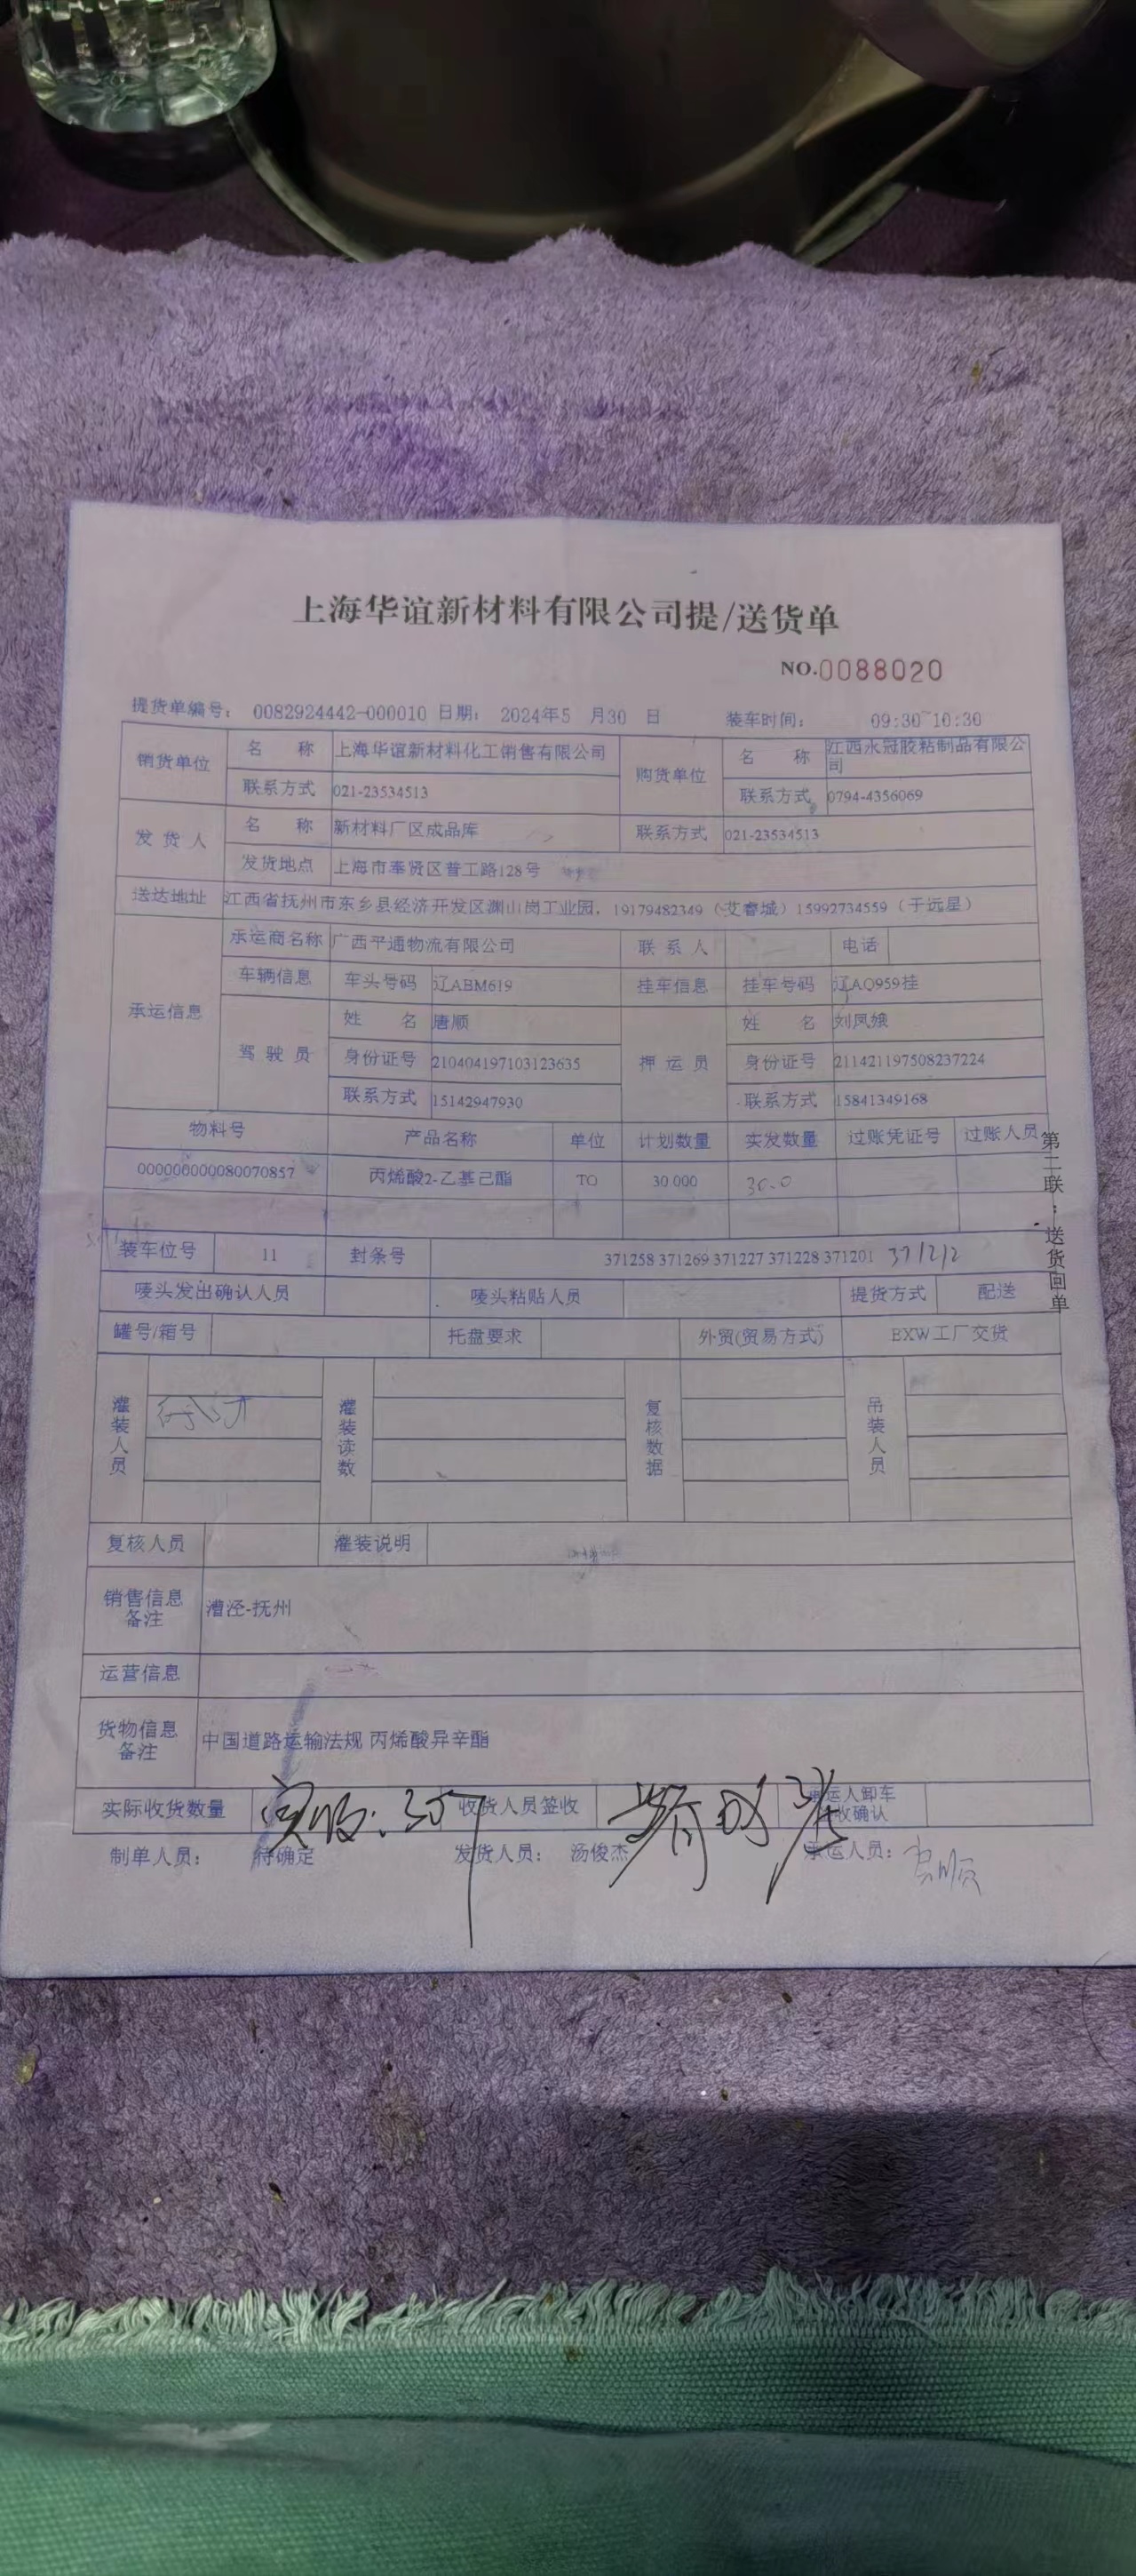 上海华谊新材料有限公司提/送货单
NO.0088020
提货单编号: 0082924442-000010 日期: 2024年5 月30 日 装车时间: 09:30~10:30
销货单位 名 称 上海华谊新材料化工销售有限公司 购货单位 名 称 江西永冠胶粘制品有限公司
联系方式 021-23534513 联系方式 0794-4356069
发 货 人 名 称 新材料厂区成品库 联系方式 021-23534513
发货地点 上海市奉贤区普工路128号
送达地址 江西省抚州市东乡县经济开发区渊山岗工业园, 19179482349 (艾睿城) 15992734559 (于远星)
承运信息 承运商名称 广西平通物流有限公司 联 系 人 电话
车辆信息 车头号码 辽ABM619 挂车信息 挂车号码 辽AQ959挂
驾 驶 员 姓 名 唐顺 押 运 员 姓 名 刘凤娥
身份证号 210404197103123635 身份证号 211421197508237224
联系方式 15142947930 联系方式 15841349168
物料号 产品名称 单位 计划数量 实发数量 过账凭证号 过账人员
000000000080070857 丙烯酸2-乙基己酯 TO 30 000 30.0
装车位号 11 封条号 371258 371269 371227 371228 371201 371212
唛头发出确认人员 唛头粘贴人员 提货方式 配送
罐号/箱号 托盘要求 外贸(贸易方式) EXW工厂交货
灌装人员 灌装读数 复核数据 吊装人员
复核人员 灌装说明
销售信息备注 漕泾-抚州
运营信息
货物信息备注 中国道路运输法规 丙烯酸异辛酯
实际收货数量 实收:30T 收货人员签收 承运人卸车 收确认
制单人员: 待确定 发货人员: 汤俊杰 承运人员: 唐顺
第二联:送货回单